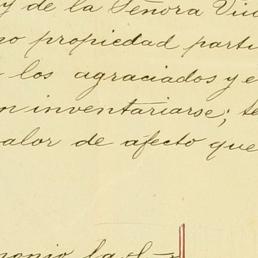 y de la Señora Viu
no propiedad parti
los agraciados y e
n inventariarse; te
valor de afecto que
monio la